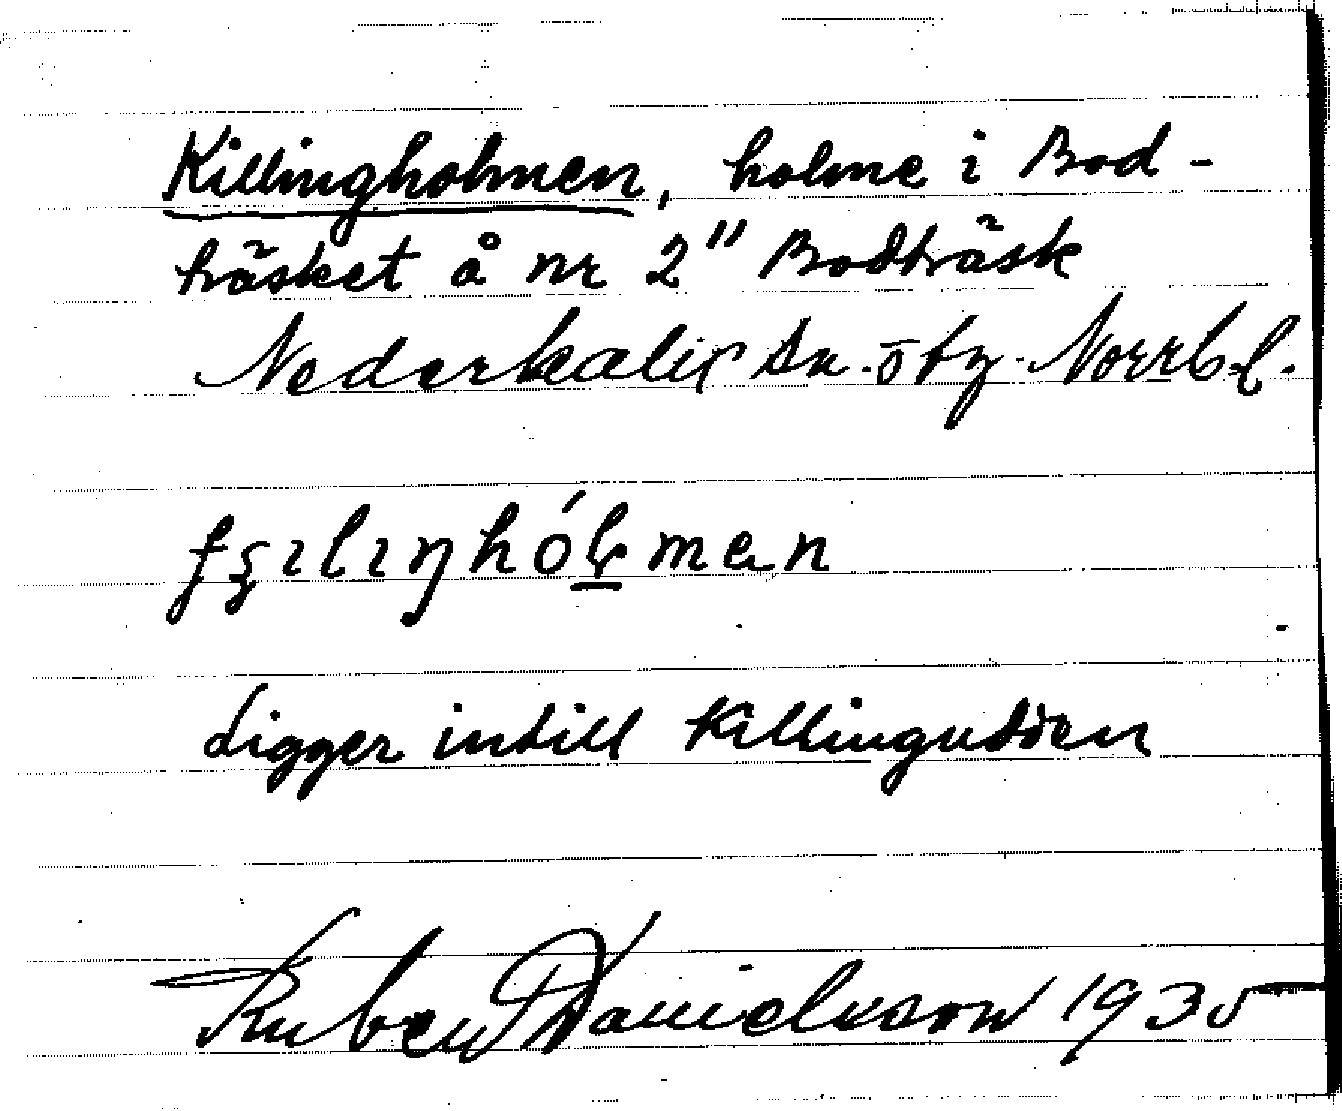 Killingholmen, holme i Bod-
träsket å nr 2" Bodträsk
Nederkalix sn. öfg. Norrb. l.
ʄʂılıŋhólmen
Ligger intill Killingudden
Ruben Danielsson 1935